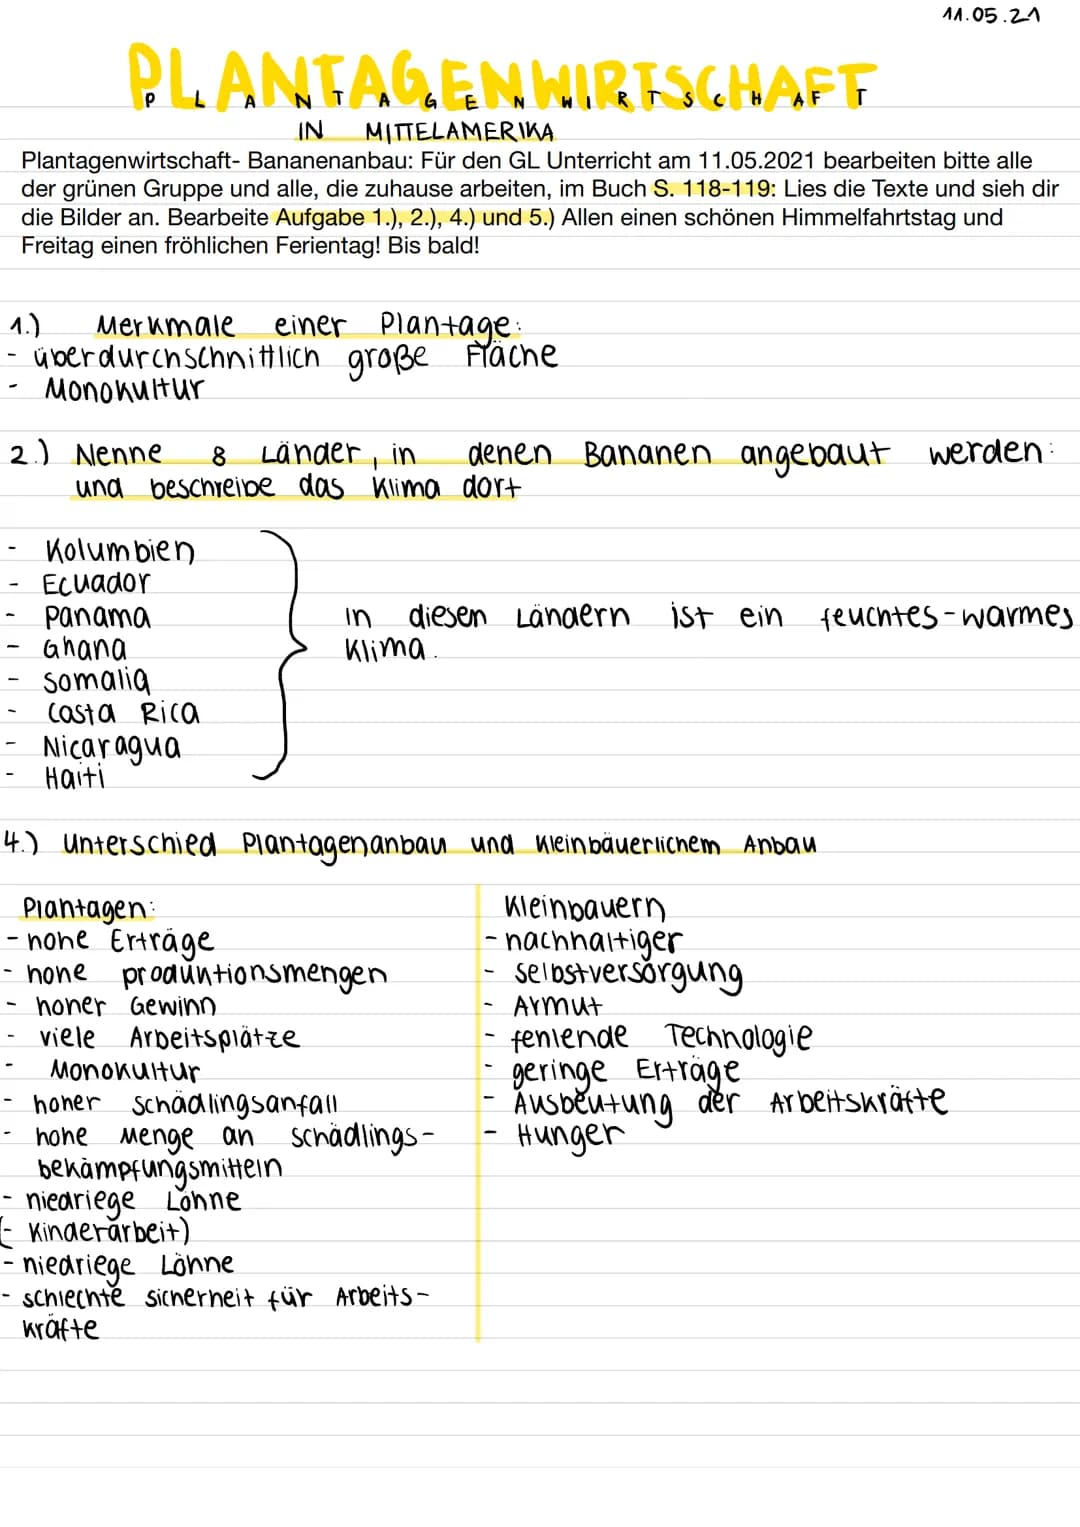 11.05.21
PLANTAGENWIRTSCHAFT
PLANTAGENWIRTSCHAFT
IN MITTELAMERIKA
Plantagenwirtschaft- Bananenanbau: Für den GL Unterricht am 11.05.2021 bearbeiten bitte alle
der grünen Gruppe und alle, die zuhause arbeiten, im Buch S. 118-119: Lies die Texte und sieh dir
die Bilder an. Bearbeite Aufgabe 1.), 2.), 4.) und 5.) Allen einen schönen Himmelfahrtstag und
Freitag einen fröhlichen Ferientag! Bis bald!
1.) Merkmale einer Plantage:
- überdurchschnittlich große Fläche
- Monokultur
2.) Nenne 8 Länder, in denen Bananen angebaut werden:
und beschreibe das Klima dort
- Kolumbien
- Ecuador
- Panama
- Ghana
- Somalia
- Costa Rica
- Nicaragua
- Haiti
In diesen Ländern ist ein feuchtes-warmes
Klima.
4.) Unterschied Plantagenanbau und Kleinbäuerlichem Anbau
Plantagen:
- hohe Erträge
- hohe produktionsmengen
- hoher Gewinn
- viele Arbeitsplätze
- Monokultur
- hoher Schädlingsanfall
- hohe Menge an Schädlings-
bekämpfungsmitteln
- niedriege Löhne
(- Kinderarbeit)
- niedriege Löhne
- schlechte sicherheit für Arbeits-
kräfte
Kleinbauern
- nachhaltiger
- selbstversorgung
- Armut
- fehlende Technologie
- geringe Erträge
- Ausbeutung der Arbeitskräfte
- Hunger